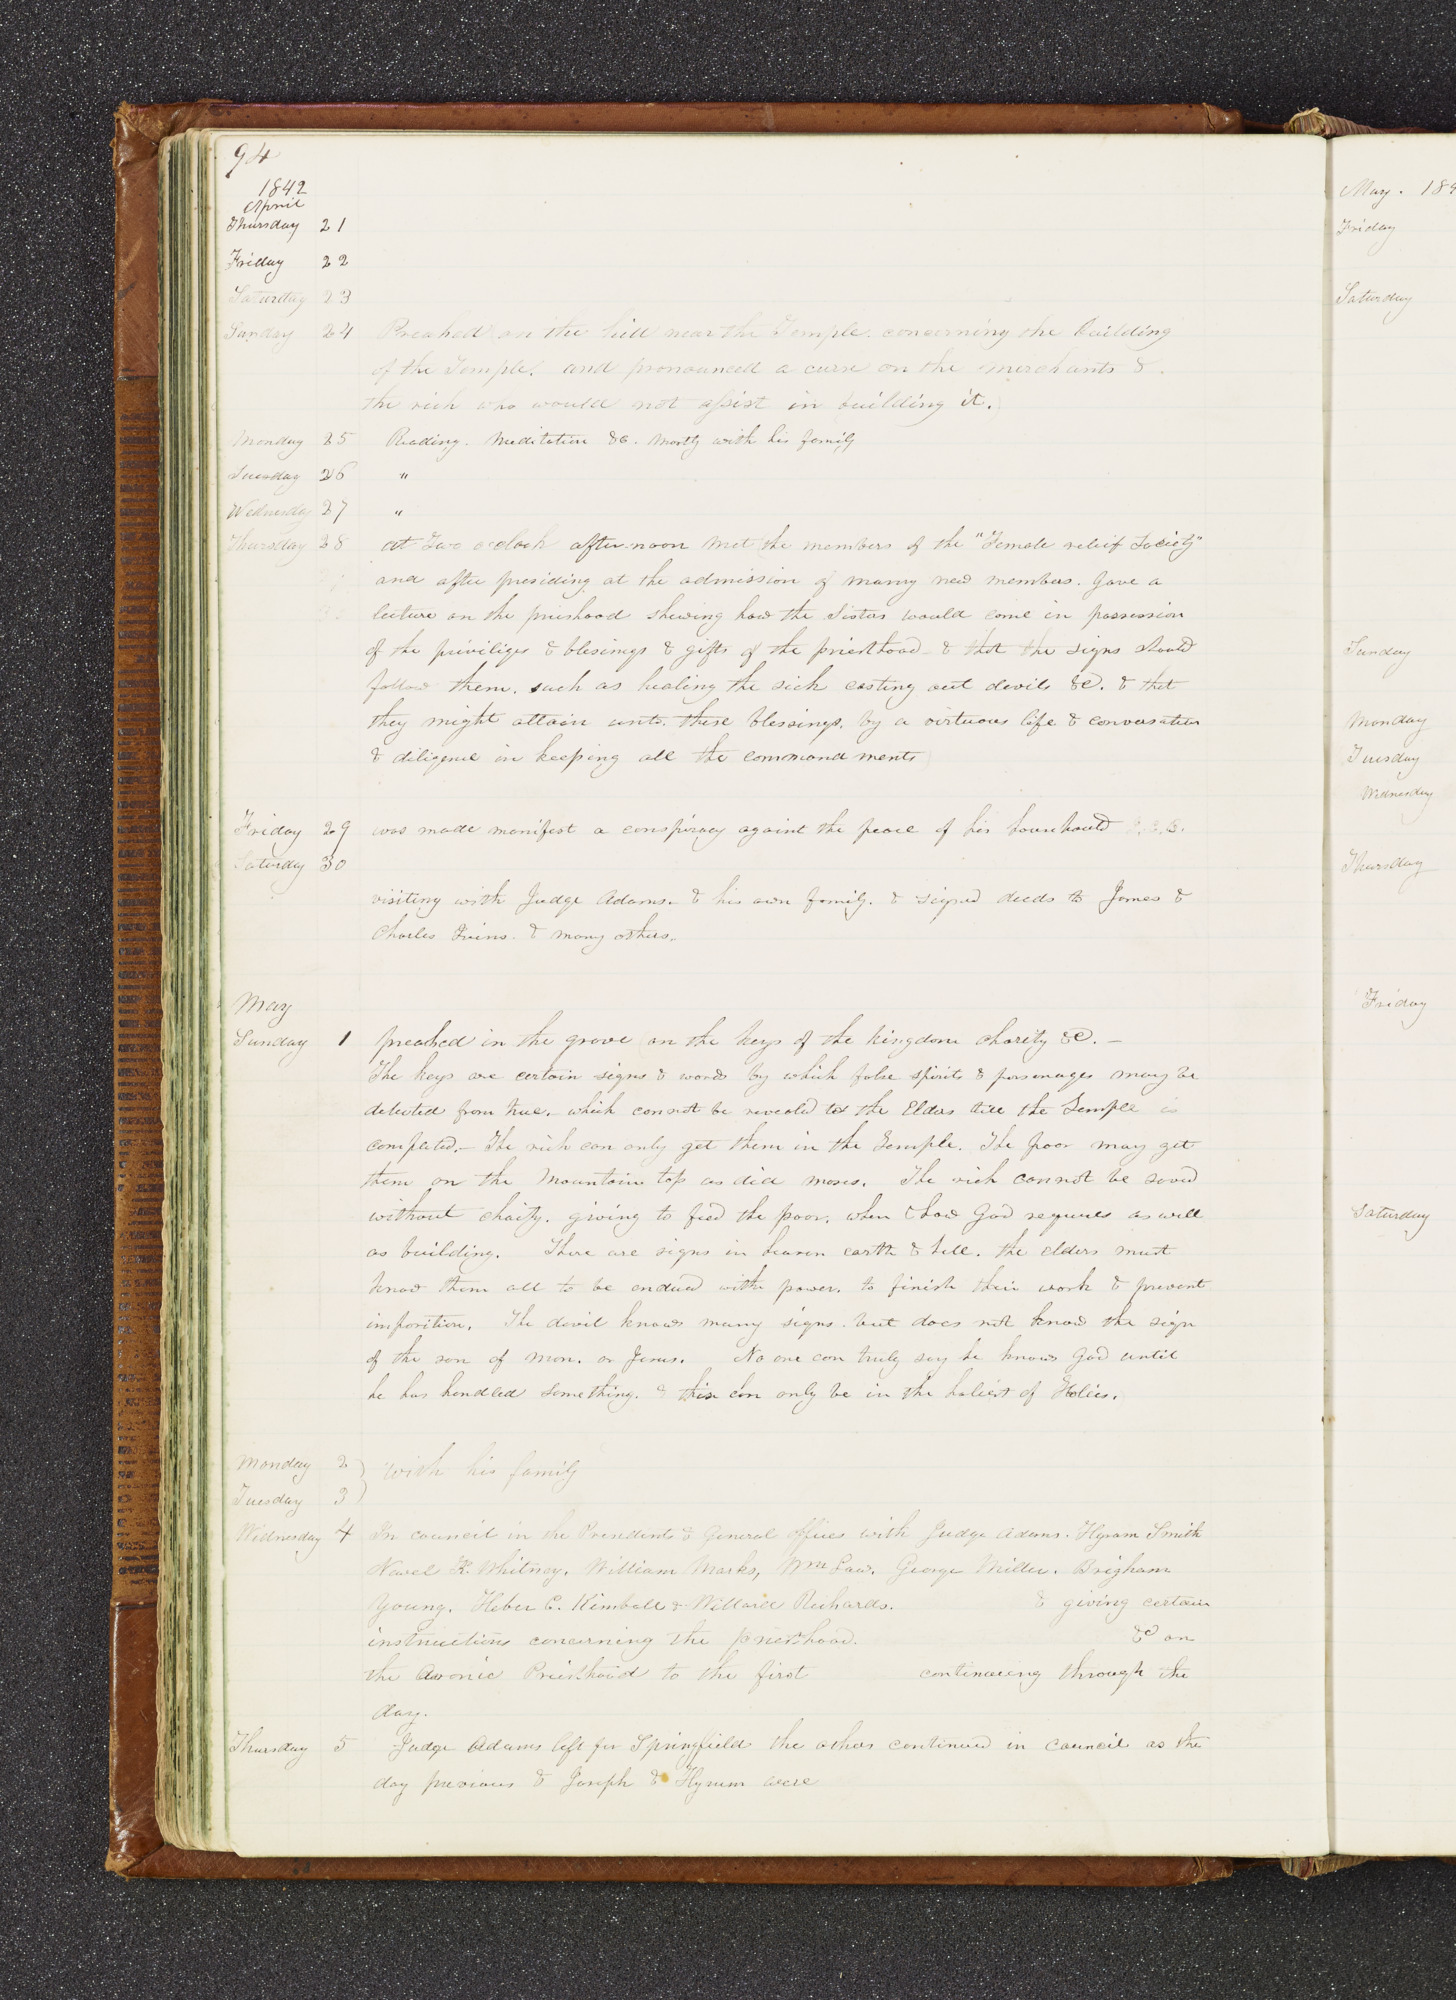 94
1842
April
Thursday 21
Friday 22
Saturday 23
Sunday 24 Preached on the hill near the Temple. concerning the building
of the Temple. and pronounced a curse on the merchants &
the rich who would not assist in building it.
Monday 25 Reading. meditation &c. mostly with his family
Tuesday 26 "
Wednesday 27 "
Thursday 28 at Two o'clock after-noon met the members of the "Female relief Society"
and after presiding at the admission of many new members. Gave a
lecture on the priesthood shewing how the Sisters would come in possession
of the priviliges & blesings & gifts of the priesthood & that the signs should
follow them. such as healing the sick casting out devils &c. & that
they might attain unto. these blessings. by a virtuous life & conversation
& diligence in keeping all the commandments
Friday 29 was made manifest a conspiracy against the peace of his househould
Saturday 30
visiting with Judge Adams. & his own family. & signed deeds to James &
Charles Ivins. & many others.
May
Sunday 1 preached in the grove on the keys of the kingdom charity &c. —
The keys are certain signs & words by which false spirits & personages may be
detected from true. which cannot be revealed to the Elders till the Temple is
completed.— The rich can only get them in the Temple. The poor may get
them on the Mountain top as did moses. The rich cannot be saved
without chaity. giving to feed the poor. when & how God requires as well
as building. There are signs in heaven earth & hell. the elders must
know them all to be endued with power. to finish their work & prevent
imposition. The devil knows many signs. but does not know the sign
of the son of man. or Jesus. No one can truly say he knows God until
he has handled something. & this can only be in the holiest of Holies.
Monday 2 with his family
Tuesday 3
Wednesday 4 In council in the Presidents & General offices with Judge Adams. Hyram Smith
Newel K. Whitney. William Marks, Wm Law. George Miller. Brigham
Young. Heber C. Kimball & Willard Richards. & giving certain
instructions concerning the priesthood. &c on
the Aronic Priesthood to the first continueing through the
day.
Thursday 5 Judge Adams left for Springfield the others continued in council as the
day previous & Joseph & Hyrum were
May. 184
Friday
Saturday
Sunday
Monday
Tuesday
Wednesday
Thursday
Friday
Saturday